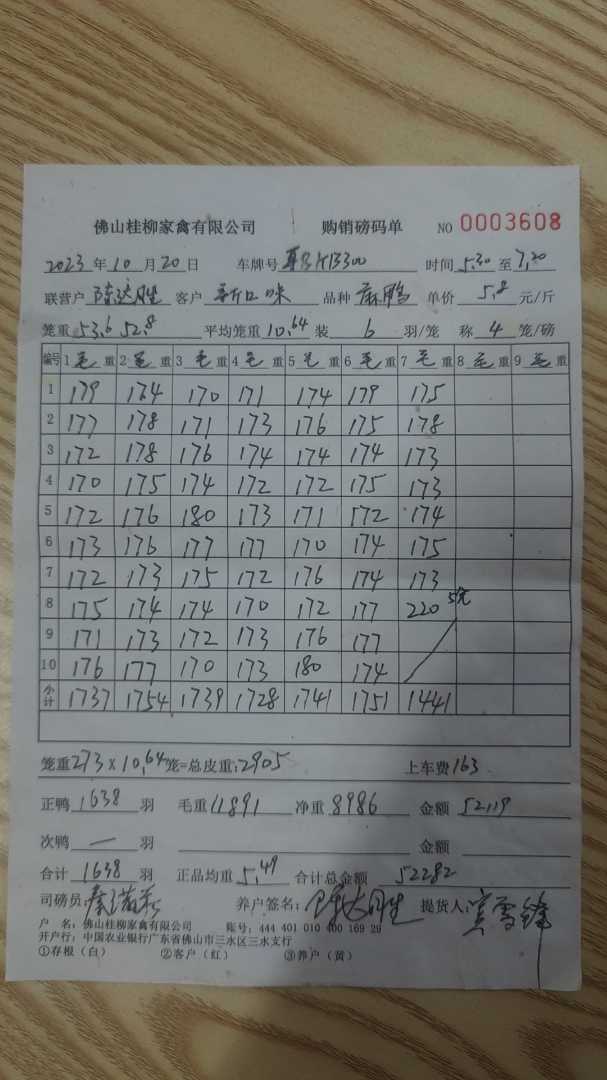 佛山桂柳家禽有限公司 购销磅码单 NO 0003608
2023 年 10 月 20 日 车牌号 时间 5.30 至 7.20
联营户 陈达胜 客户 新口味 品种 麻鸭 单价 5.8 元/斤
笼重 53.6 52.8 平均笼重 10.64 装 6 羽/笼 称 4 笼/磅
编号 1 毛 重 2 毛 重 3 毛 重 4 毛 重 5 毛 重 6 毛 重 7 毛 重 8 毛 重 9 毛 重
1 179 164 170 171 174 179 175
2 177 178 171 173 176 175 178
3 172 178 176 174 174 174 173
4 170 175 174 172 172 175 173
5 172 176 180 173 171 172 174
6 173 176 177 177 170 174 175
7 172 173 175 172 176 174 173
8 175 174 174 170 172 177 220 5只
9 171 173 172 173 176 177
10 176 177 170 173 180 174
小计 1737 1754 1739 1728 1741 1751 1441
笼重 273 × 10.64 笼=总皮重: 2905 上车费 163
正鸭 1638 羽 毛重 11891 净重 8986 金额 52119
次鸭 — 羽 金额
合计 1638 羽 正品均重 5.49 合计总金额 52282
司磅员: 养户签名: 陈达胜 提货人:
户 名: 佛山桂柳家禽有限公司 账号: 444 401 010 400 169 29
开户行: 中国农业银行广东省佛山市三水区三水支行
①存根(白) ②客户(红) ③养户(黄)